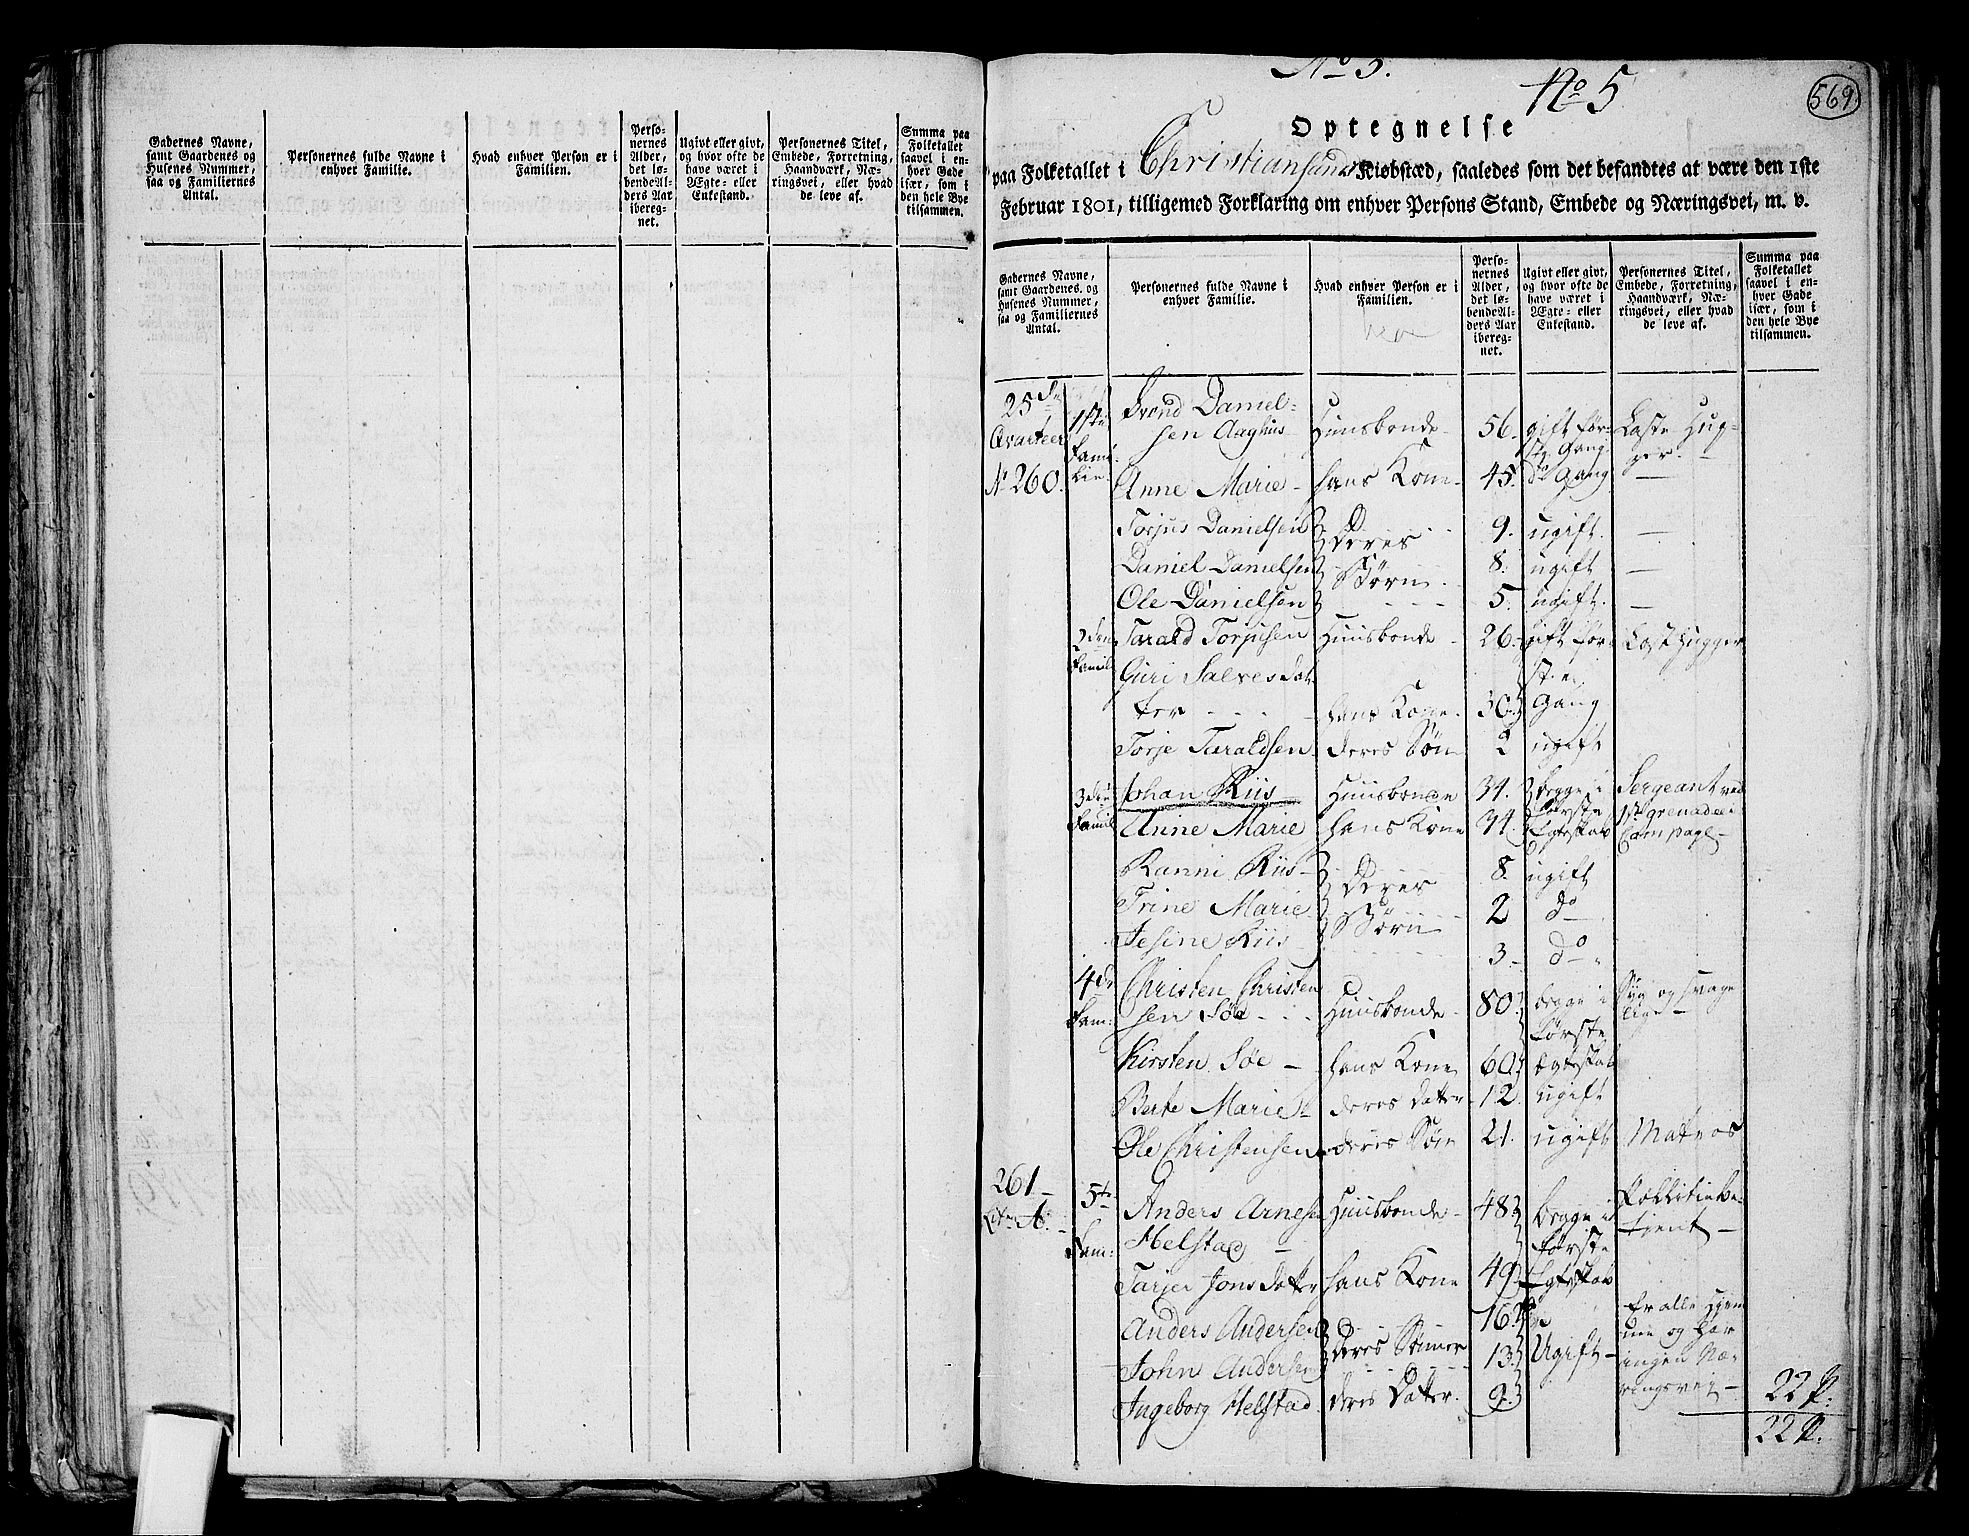 Gadernes Navne,
samt Gaardenes og
Husenes Nummer,
saa og Familiernes
Antal.
Personernes fulde Navne i
enhver Familie.
Hvad enhver Person er i
Familien.
Perso-
nernes
Alder,
det lø-
bende Al-
ders Aar
ibereg-
net.
Ugivt eller givt,
og hvor ofte de
have været i
Ægte- eller
Enkestand.
Personernes Titel,
Embede, Forretning,
Haandværk, Næ-
ringsvei, eller hvad
de leve af.
Summa paa
Folketallet
saavel i en-
hver Gade
især, som i
den hele Bye
tilsammen.
No 5.
No 5
569
Optegnelse
paa Folketallet i Christiansand Kiøbstæd, saaledes som det befandtes at være den 1ste
Februar 1801, tilligemed Forklaring om enhver Persons Stand, Embede og Næringsvei, m. v.
Gadernes Navne,
samt Gaardenes og
Husenes Nummer,
saa og Familiernes
Antal.
Personernes fulde Navne i
enhver Familie.
Hvad enhver Person er i
Familien.
Perso-
nernes
Alder,
det lø-
bende Al-
ders Aar
ibereg-
net.
Ugivt eller givt,
og hvor ofte de
have været i
Ægte- eller
Enkestand.
Personernes Titel,
Embede, Forretning,
Haandværk, Næ-
ringsvei, eller hvad
de leve af.
Summa paa
Folketallet
saavel i en-
hver Gade
især, som i
den hele Bye
tilsammen.
25de 1ste Daniel-
Qvarteer Fami- sen Aaghus Huusbonde 56. gift før- Laste Hug-
ste Gang ger.
No 260. lie. Anne Marie hans Kone 45. do Gang
Torjus Danielsen Deres 9. ugift.
Daniel Danielsen Børn 8. ugift
Ole Danielsen 5. ugift.
2den Tarald Torjusen Huusbonde 26. gift før- Lasthugger
Famil Guri Salves Dat- ste
ter hans Kone 30. Gang
Torje Taraldsen deres Søn 2 ugift
3die Johan Riis Huusbonde 34. begge i Sergeant ved
første 1ste grenadeer
Famil Anne Marie hans Kone 34. Egteskab Compagf
Ranni Riis Deres 8. ugift
Trine Marie Børn 2 do
Jesine Riis 3. do
4de Christen Christen Syg og svage
Fam: sen Søe Huusbonde 80. begge i lige
første
Kirsten Søe hans Kone 60. egteskab
Berte Marie deres Datter 12. ugift
Ole Christensen deres Søn 21. ugift Matros
261 5te Pollitiebe-
Litr A. Anders Arnesen Huusbonde 48. begge i tient
Fam: Helstad første
Tarjer Jons Datter hans Kone 49. Egteskab
Anders Andersen 16. Er alle hjem
Deres Sønner me og har
John Andersen 13. Ugift ingen Næ-
Ingeborg Helstad deres Datter. 9. ringsvei 22 P.
22 P.